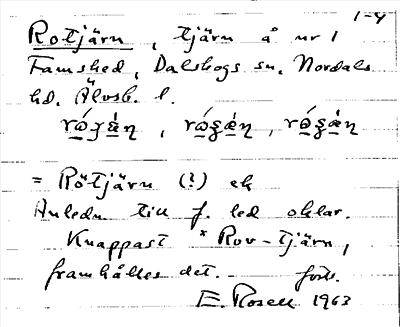 1-4
Rotjärn, tjärn å nr 1
Famshed, Dalskogs sn. Nordals
hd. Älvsb. l.
= Rötjärn (?) ek
Anledn till f. led oklar.
Knappast *Rov-tjärn,
framhålles det. - forts.
E. Rosell 1963